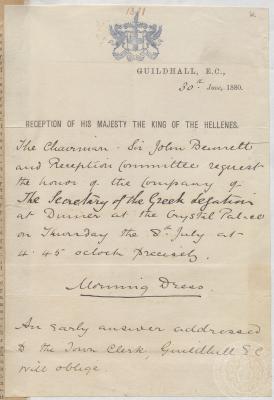 1381
GUILDHALL, E.C.,
30th June, 1880.
RECEPTION OF HIS MAJESTY THE KING OF THE HELLENES.
The Chairman - Sir John Bennett
and Reception Committee request
the honor of the Company of
The Secretary of the Greek Legation
at Dinner at the Crystal Palace
on Thursday the 8th July at
4.45 oclock precisely.
Morning Dress.
An early answer addressed
to the Town Clerk, Guildhall E C
will oblige.